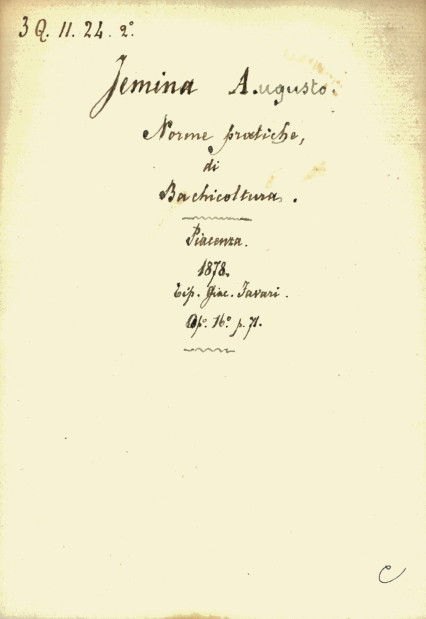 3 Q. 11. 24. 2º
Jemina Augusto.
Norme pratiche,
di
Bachicoltura.
Piacenza.
1878.
Tip. Giac. Tavari.
Op.º 16.º p. 71.
C